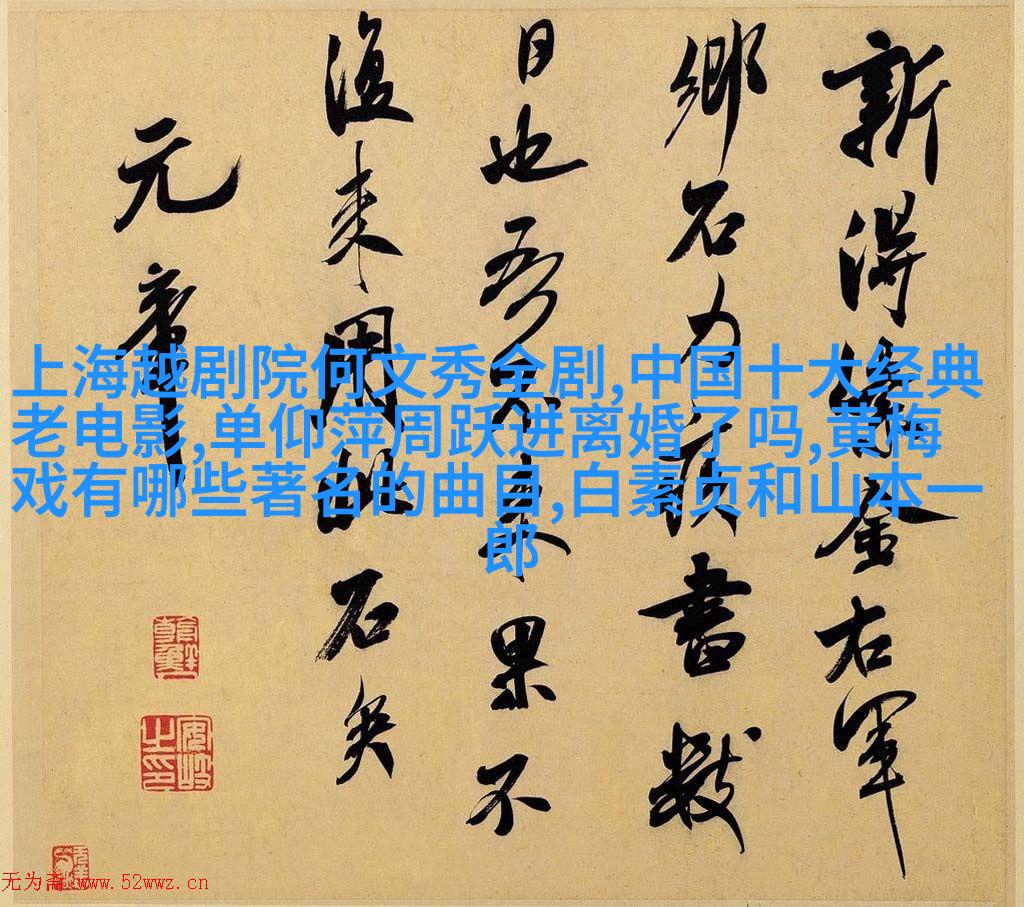 新得紫金右軍
鄉石力疾書數
日也吾不来果不
復来用此石矣
元章
安岐之印
上海越剧院何文秀全剧,中国十大经典
老电影,单仰萍周跃进离婚了吗,黄梅
戏有哪些著名的曲目,白素贞和山本一
郎
无为斋 www.52wwz.cn